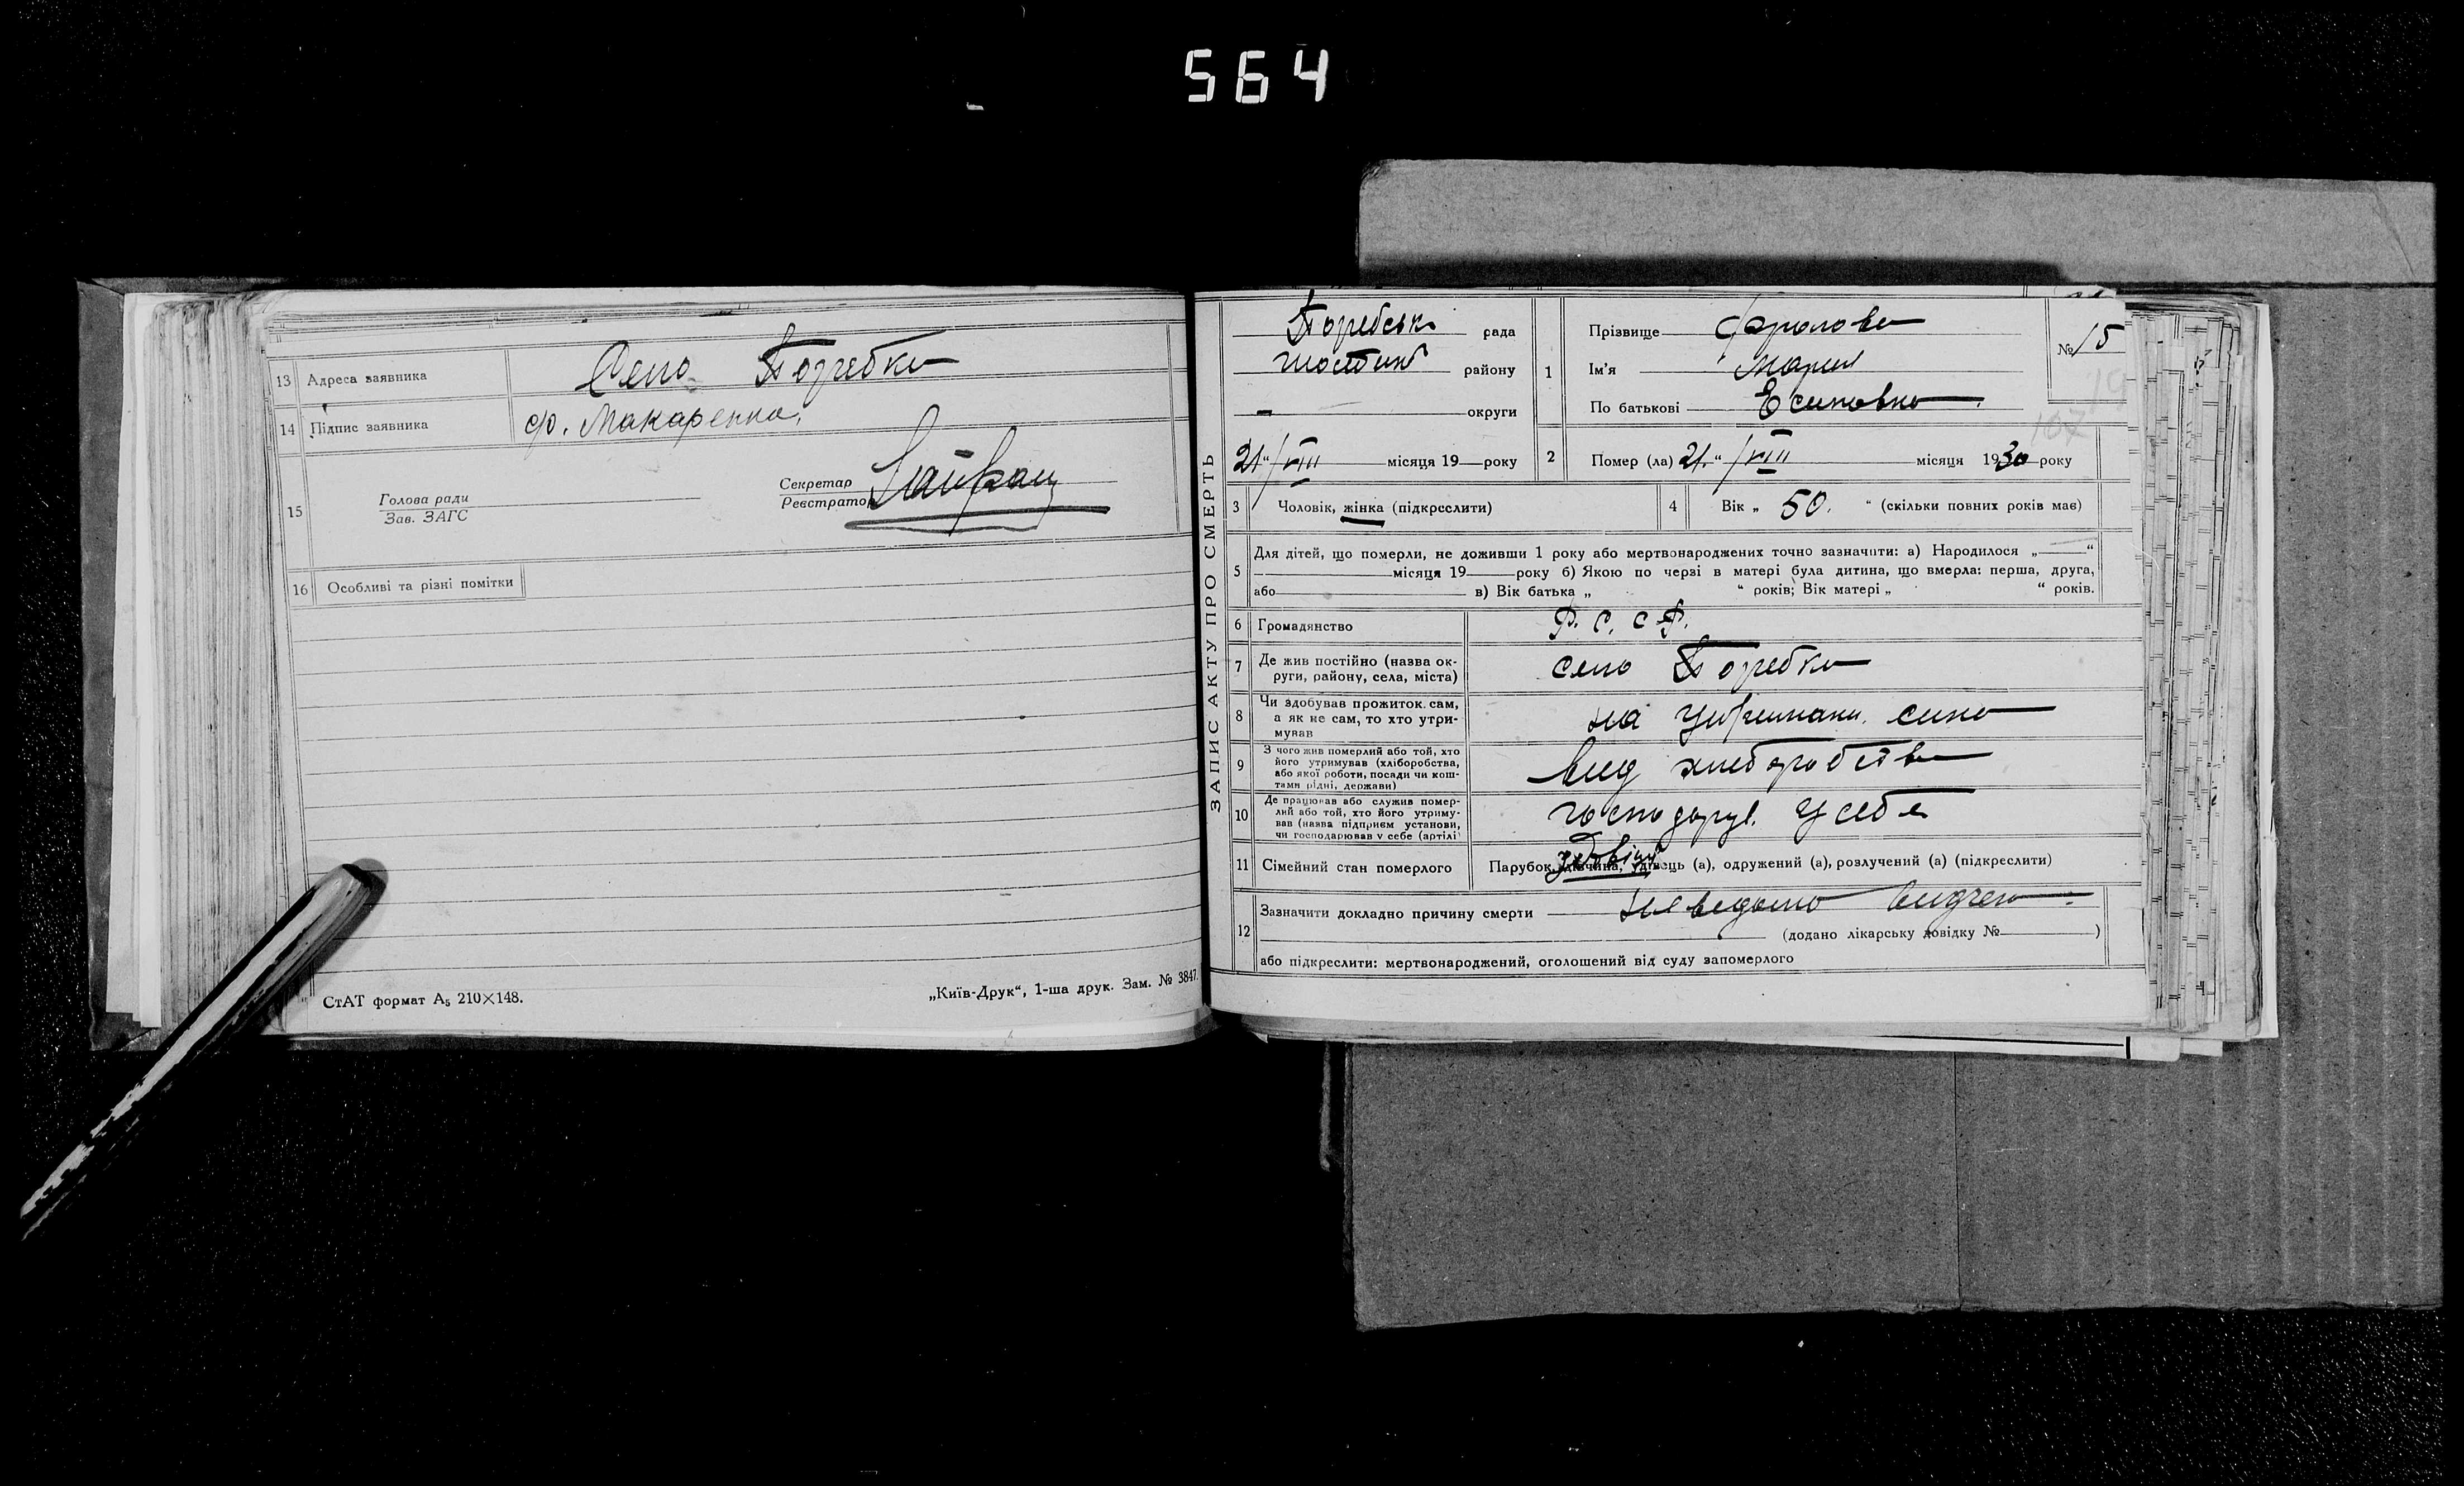 564
13 Адреса заявника Село Погребки
14 Підпис заявника Ф. Макаренко,
15 Голова ради
Зав. ЗАГС
Секретар
Реєстратор
16 Особливі та різні помітки
СтАТ формат А₅ 210×148.
„Київ-Друк“, 1-ша друк. Зам. № 3847.
ЗАПИС АКТУ ПРО СМЕРТЬ
рада
району
— округи
21 "/VIII місяця 19 року
1 Прізвище Фролова
Ім'я Мария
По батькові
№ 15
107
2 Помер (ла) 21. "/VIII місяця 1930 року
3 Чоловік, жінка (підкреслити)
4 Вік „ 50. “ (скільки повних років має)
5 Для дітей, що померли, не доживши 1 року або мертвонароджених точно зазначити: а) Народилося „ “
місяця 19 року б) Якою по черзі в матері була дитина, що вмерла: перша, друга,
або в) Вік батька „ “ років; Вік матері „ “ років.
6 Громадянство Р. С. С Ф.
7 Де жив постійно (назва округи, району, села, міста) село Погребки
8 Чи здобував прожиток сам,
а як не сам, то хто утри-
мував
на сина
9 З чого жив померлий або той, хто
його утримував (хліборобства,
або якої роботи, посади чи кош-
тами рідні, держави)
вид хлеборобства
10 Де працював або служив помер-
лий або той, хто його утриму-
вав (назва підприєм установи,
чи господарював у себе (артілі
господарув. у себя
11 Сімейний стан померлого Парубок, дівчина, удівець (а), одружений (а), розлучений (а) (підкреслити)
12 Зазначити докладно причину смерти
(додано лікарську довідку № )
або підкреслити: мертвонароджений, оголошений від суду запомерлого